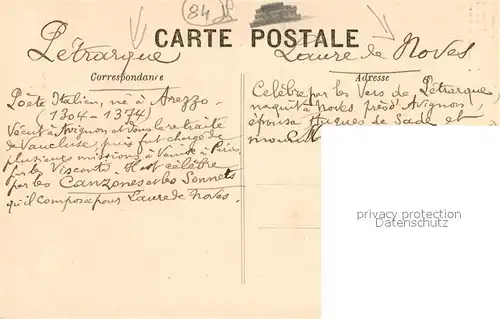 (84)
CARTE POSTALE
Pétrarque
Laure de Noves
Correspondance
Adresse
Poète Italien, né à Arezzo
(1304-1374)
Vécut à Avignon et dans la retraite
de Vaucluse, puis fut chargé de
plusieurs missions à Venise à Paris
par les Visconti. Il est célèbre
par les Canzones et les Sonnets
qu'il composa pour Laure de Noves.
Célèbre par les Vers de Pétrarque,
naquit à Noves près d'Avignon,
épousa Hugues de Sade et
mourut
privacy protection
www.AnsichtskartenVersand.com